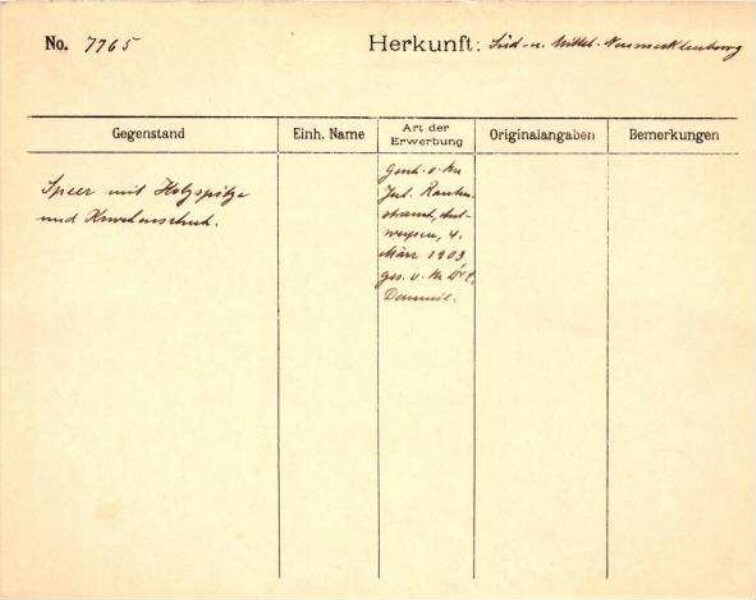 No. 7765
Herkunft: Süd-u. Mittel-Neumecklenburg
Gegenstand
Einh. Name
Art der
Erwerbung
Originalangaben
Bemerkungen
Speer mit Holzspitze
und Knochenschuh.
Gesch. v. Hn
Jul. Rauten-
strauch, Ant-
werpen, 4.
März 1909
ges. v. Hn Dr
Danneil.